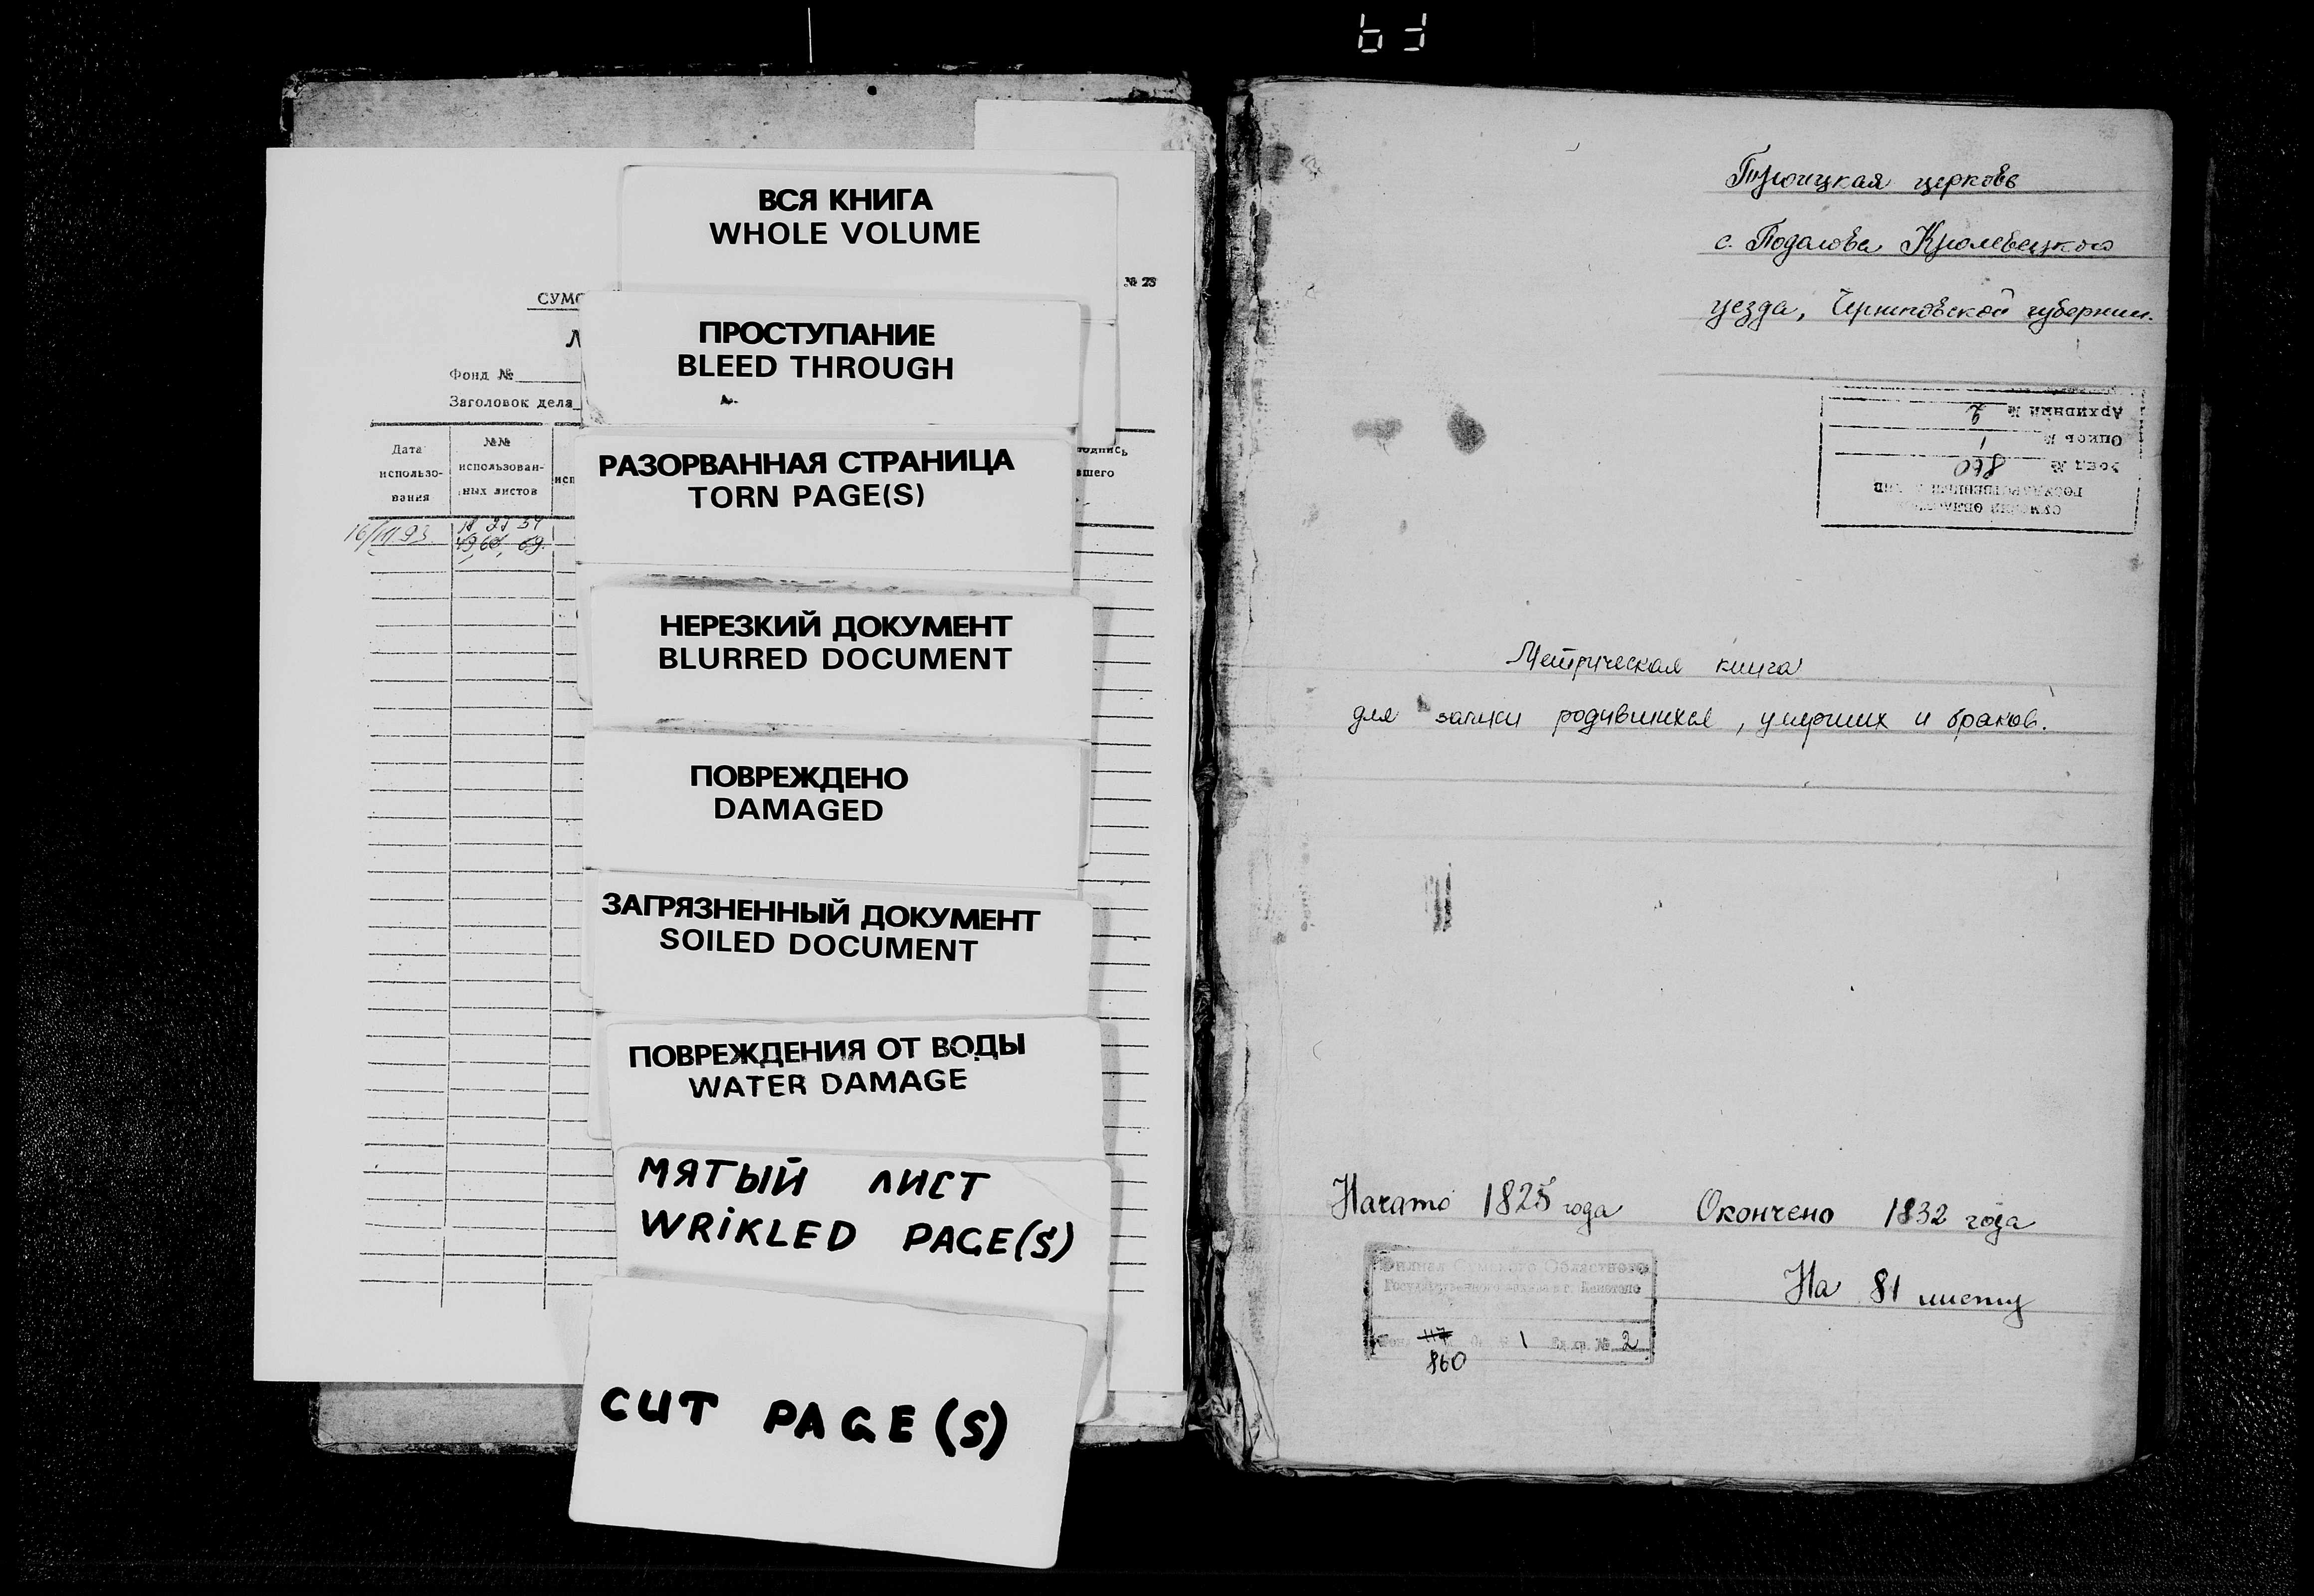 № 23
СУМО
Фонд №
Заголовок дела
Дата использо-вания
№№ использован-ных листов
исп
одпись
вшего
16/III.93.
18 27 34
49, 60, 69.
ВСЯ КНИГА
WHOLE VOLUME
ПРОСТУПАНИЕ
BLEED THROUGH
РАЗОРВАННАЯ СТРАНИЦА
TORN PAGE(S)
НЕРЕЗКИЙ ДОКУМЕНТ
BLURRED DOCUMENT
ПОВРЕЖДЕНО
DAMAGED
ЗАГРЯЗНЕННЫЙ ДОКУМЕНТ
SOILED DOCUMENT
ПОВРЕЖДЕНИЯ ОТ ВОДЫ
WATER DAMAGE
МЯТЫЙ ЛИСТ
WRIKLED PAGE(S)
CUT PAGE(S)
Троицкая церковь
с. Подолова Кролевецкого
уезда, Черниговской губернии.
СУМСКИЙ ОБЛАСТНОЙ
ГОСУДАРСТВЕННЫЙ АРХИВ
Фонд № 860
Опись № 1
Архивный № 2
Метрическая книга
для записи родившихся, умерших и браков.
Начато 1825 года Окончено 1832 года
На 81 листу
Филиал Сумского Областного
Государственного архива в г. Конотопе
Фонд 117 Оп. № 1 Ед. хр. № 2
860